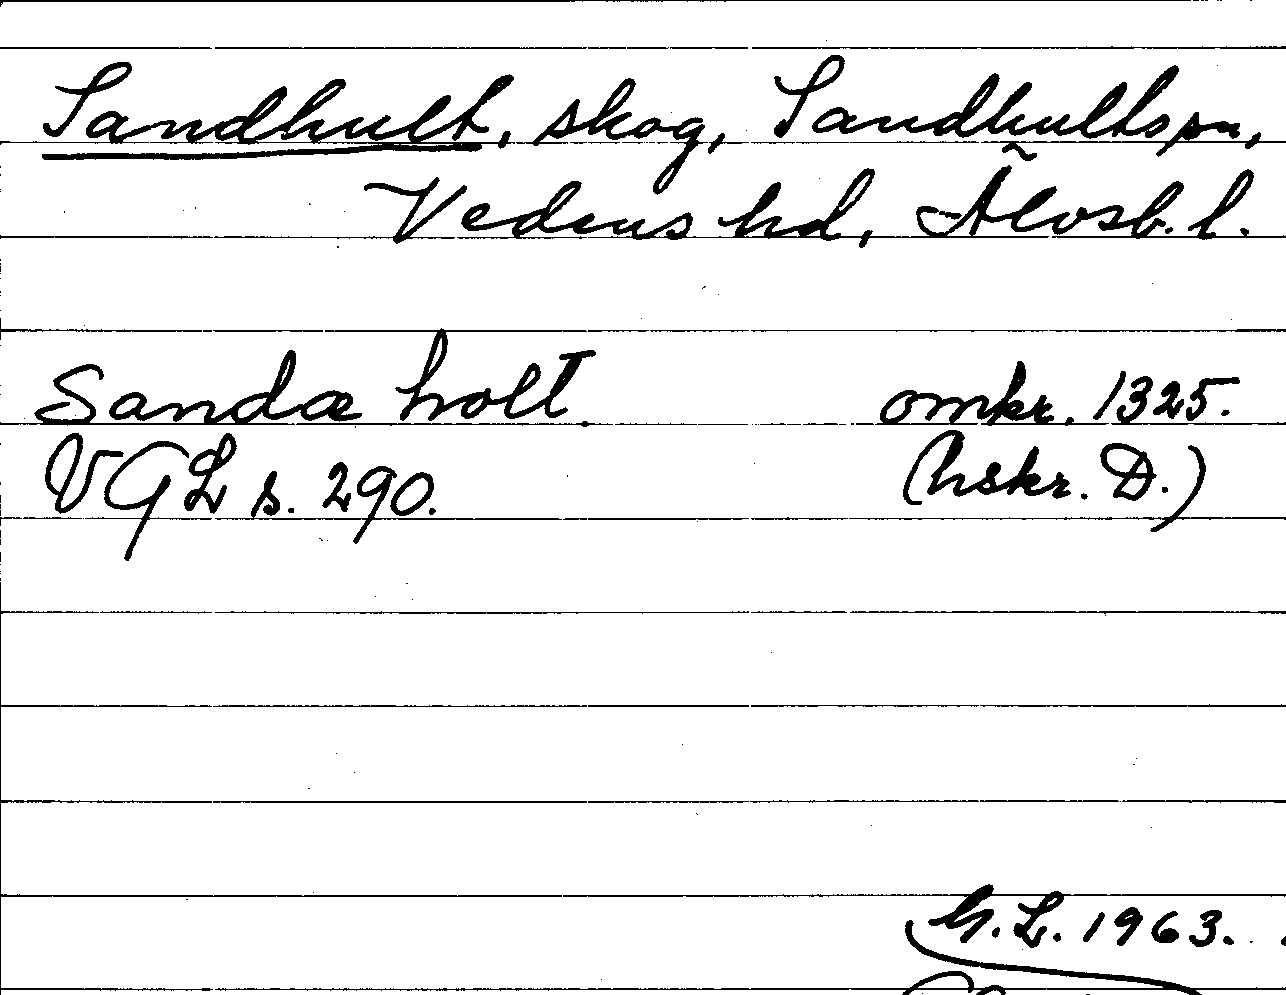 Sandhult, skog, Sandhults sn,
Vedens hd, Älvsb. l.
Sandæ holt omkr. 1325.
VGL s. 290. (hskr. D.)
G.L. 1963.